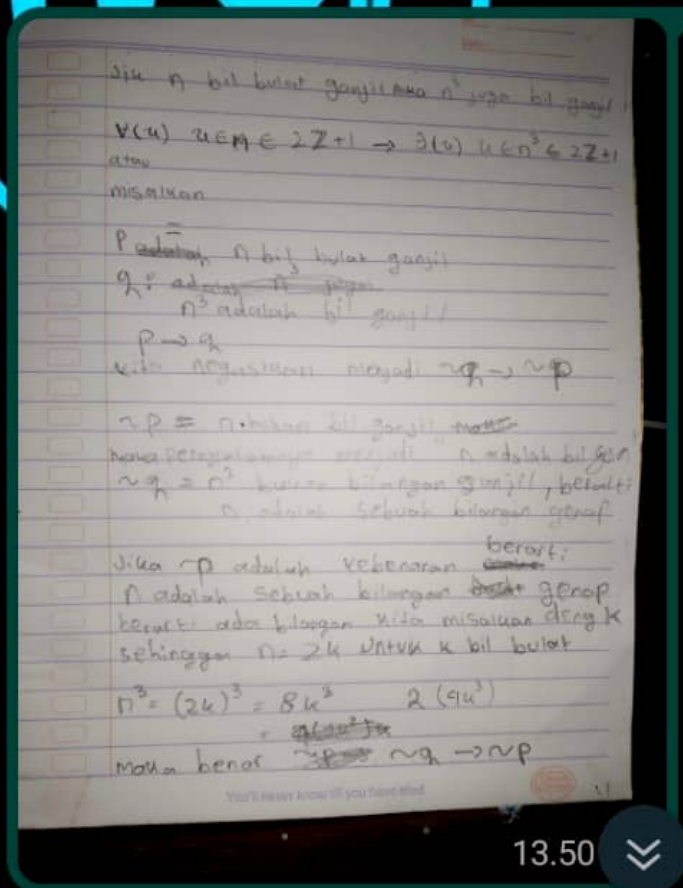 Jika n bil bulat ganjil maka n³ juga bil ganjil
∀(u) u∈n ∈ 2Z+1 → ∃(u) u∈n³ ∈ 2Z+1
atau
misalkan
P = n bil bulat ganjil
q :
n³ adalah bil ganjil
p → q
kita negasikan menjadi ~q → ~p
~p = n bukan bil ganjil
maka menjadi n adalah bil gen
~q = n³ bukan bilangan ganjil, berarti
n adalah sebuah bilangan genap
Jika ~p adalah kebenaran berarti
n adalah sebuah bilangan genap
berarti ada bilangan kita misalkan deng k
sehinggan n = 2k untuk k bil bulat
n³ = (2k)³ = 8k³ 2(4k³)
=
maka benar ~q → ~p
You'll never know till you have tried
13.50